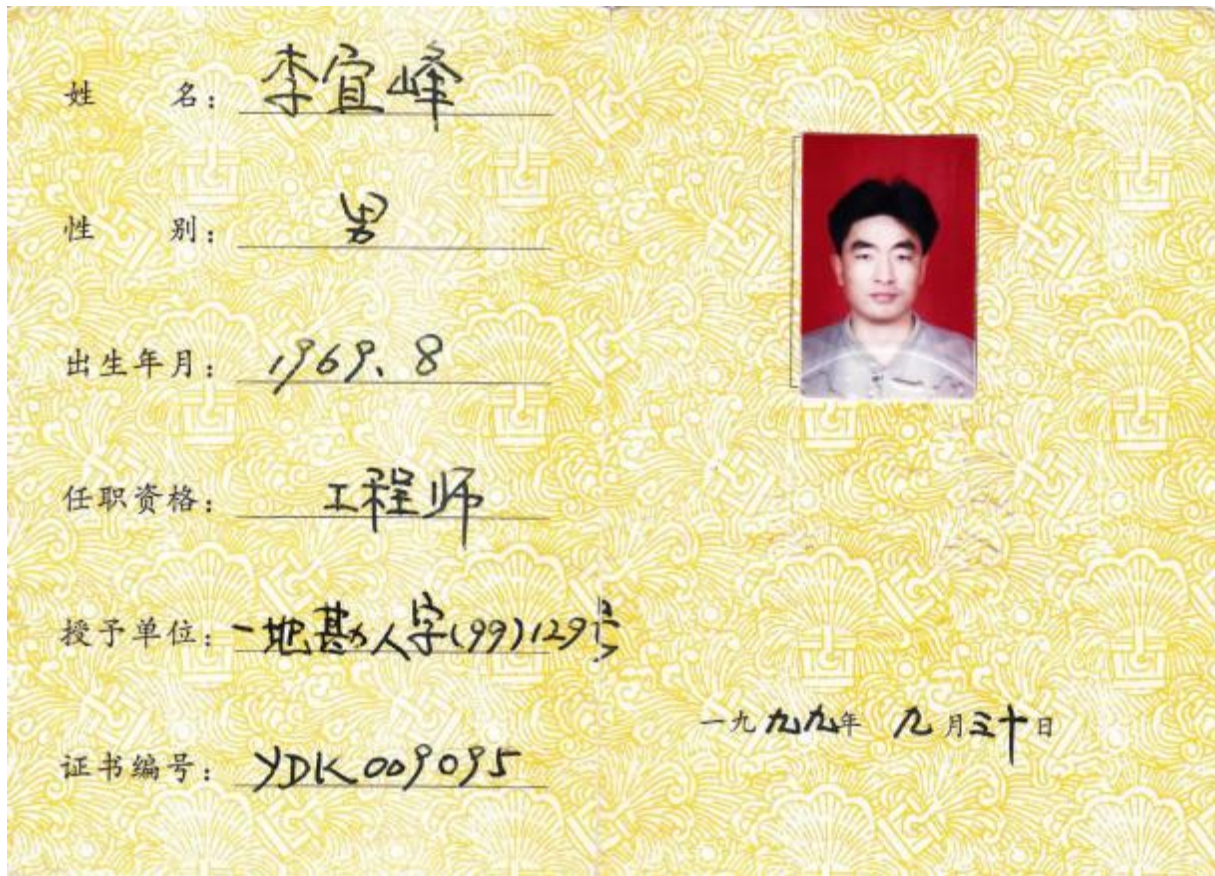 姓 名：李宜峰
性 别：男
出生年月：1969、8
任职资格：工程师
授予单位：一地勘人字(99)129号
证书编号：YDK009095
一九九九年 九月三十日